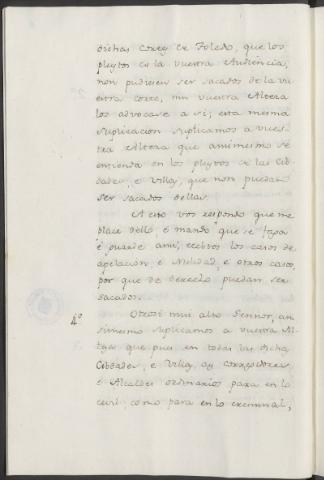 dichas Cortes de Toledo, que los
pleytos de la vuestra Audiencia,
non pudiesen ser sacados de la vu
estra corte, nin vuestra Alteza
los advocase a si; esta mesma
suplicacion suplicamos a vues-
tra Alteza que ansimesmo se
entienda en los pleytos de las Cib-
dades, e Villas, que non puedan
ser sacados dellas.
A esto vos respondo que me
place dello, é mando que se faga
é guarde ansi, ecebtos los casos de
apelacion, é Nulidad, e otros casos,
por que de derecho puedan ser
sacados.
4º Otrosi mui alto Sennor, an
simesmo suplicamos a vuestra Al-
teza que pues en todas las dichas
Cibdades, e Villas, ay corregidores
e Alcaldes ordinarios para en lo
cevil como para en lo creminal,